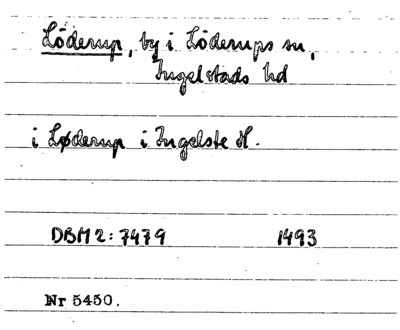 Löderup, by i Löderups sn,
Ingelstads hd
i Løderup i Ingelste H.
DBM 2: 7479 1493
Nr 5450.